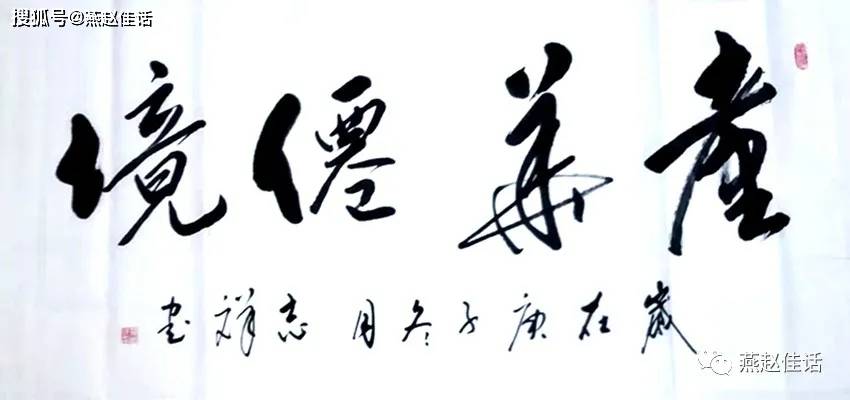 搜狐号@燕赵佳话
臺華僊境
歲在庚子冬月志祥書
燕赵佳话